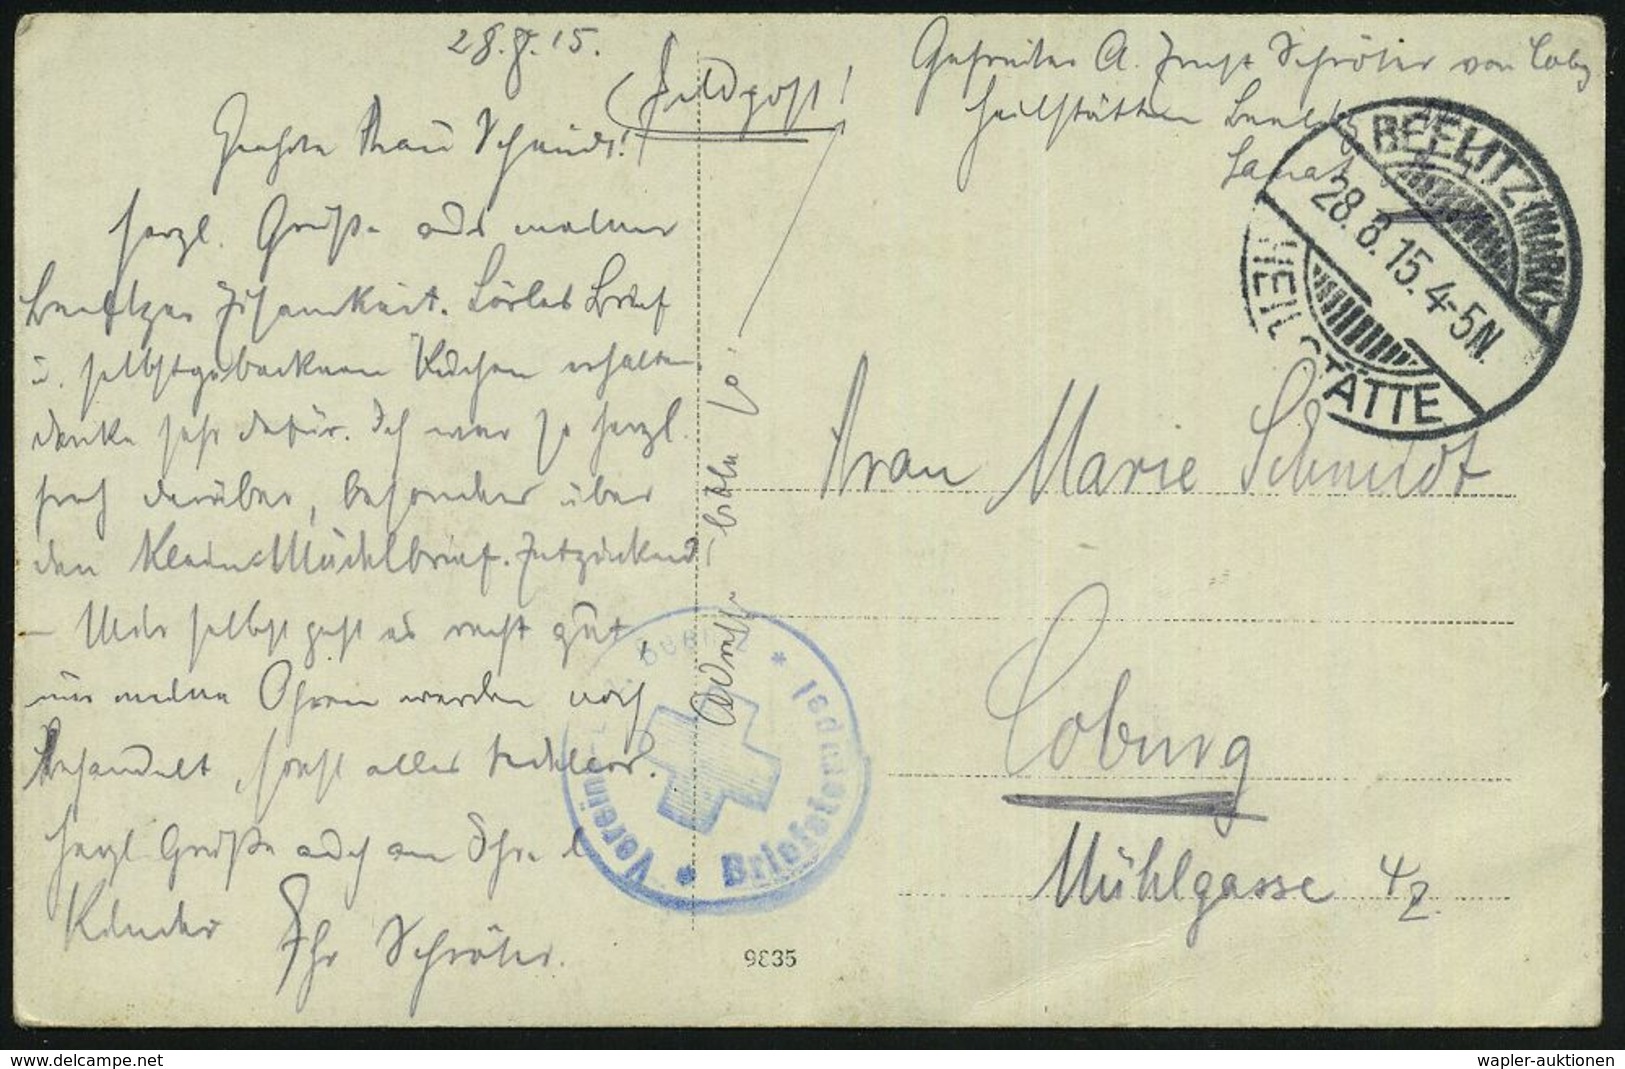 28.8.15.
Feldpost!
Geehrte Frau Schmidt!
Herzl. Grüße aus meiner
Beelitzer Einsamkeit. Brief
u. selbstgebackenen Kuchen erhalten,
danke sehr dafür. Ich war so herzl.
froh darüber, besonders über
den Brief. Entzückend
– Mir selbst geht es recht gut
nur meine Ohren werden noch
behandelt, sonst alles tadellos.
Herzl Grüße auch an Ihre l
Kinder Ihr Schröter.
Gefreiter A. Ernst Schröter von Cobg
Heilstätten Beelitz
Sanat
BEELITZ (MARK)
28.8.15.4-5N.
HEILSTÄTTE
Frau Marie Schmidt
Coburg
Mühlgasse 4
Adresse
Vereins
* Briefstempel *
9835
© delcampe.net
wapler-auktionen